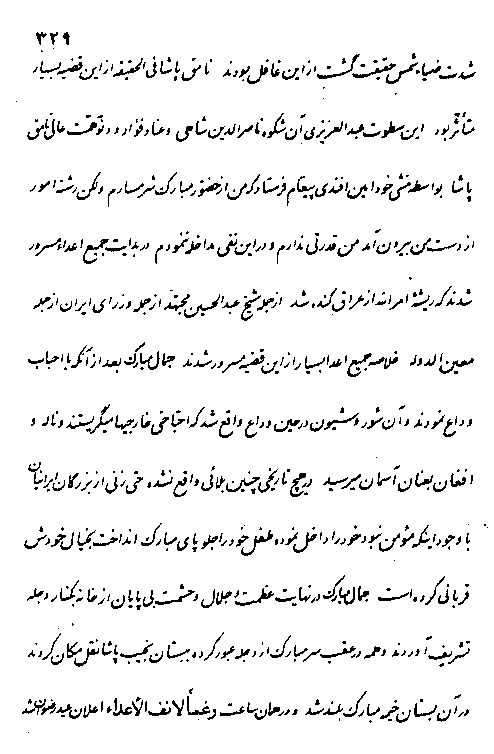 ٣٢٩
شدت ضیاء شمس حقیقت گشت از این غافل بودند نامق پاشا فی الحقیقه از این قضیه بسیار
متأثر بود این سطوت عبدالعزیزی آن شکوه ناصرالدین شاهی و عناد فؤاد و نوهمت عالی نامق
پاشا بواسطه منشی خود امین افندی پیغام فرستاد که من از حضور مبارک شرمسارم ولکن رشته امور
از دست من بیرون آمد من قدرتی ندارم و در این نفی مداخله ننمودم در بدایت جمیع اعداء مسرور
شدند که ریشه امرالله از عراق کنده شد از جمله شیخ عبدالحسین مجتهد از جمله وزرای ایران از جمله
معین الدوله خلاصه جمیع اعدا بسیار از این قضیه مسرور شدند جمال مبارک بعد از آنکه با احباب
وداع نمودند و آن شور و شیون در حین وداع واقع شد که احتیاحتی خارجیها میگریستند و ناله و
افغان بعنان آسمان میرسید در هیچ تاریخی چنین بلائی واقع نشده حتی زنی از بزرگان ایرانیان
با وجود اینکه مؤمن نبود خود را داخل نموده طفل خود را جلو پای مبارک انداخت بخیال خودش
قربانی کرده است جمال مبارک در نهایت عظمت و جلال و حشمت بی پایان از خانه بکنار دجله
تشریف آوردند و همه در عقب سر مبارک از دجله عبور کرده ببستان نجیب پاشا نقل مکان کردند
در آن بستان خیمه مبارک بلند شد و در همان ساعت رغماً لانف الاعداء اعلان عید رضوان شد